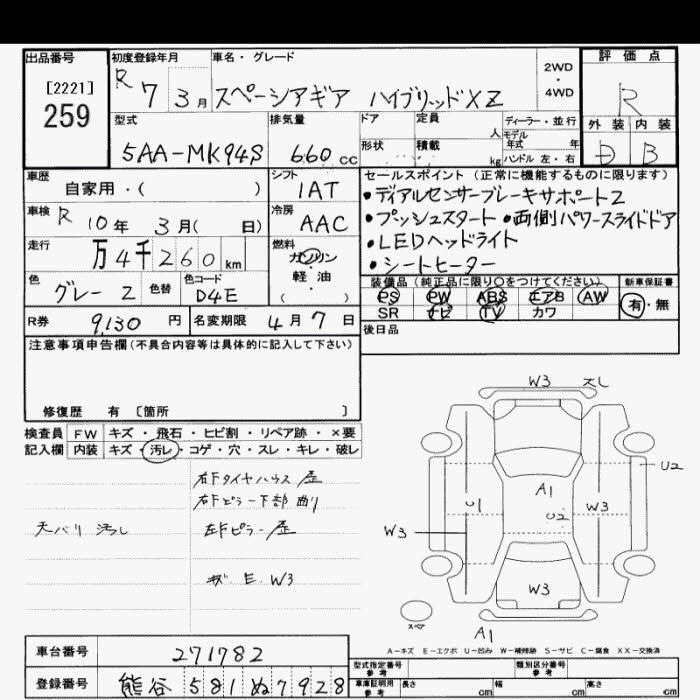 出品番号 初度登録年月 車名・グレード 評価点
[2221] 259 R 7 3月 スペーシアギア ハイブリッドXZ 2WD・4WD R
型式 排気量 ドア 定員 人 ディーラー・並行 外装 内装
5AA-MK94S 660cc 形状 積載 kg モデル年式 年 ハンドル 左・右 D B
車歴 自家用・( ) シフト IAT セールスポイント(正常に機能するものに限ります)
・ディアルセンサーブレーキサポート2
車検 R 10年 3月( 日) 冷房 AAC ・プッシュスタート ・両側パワースライドドア
走行 万4千260km 燃料 ガソリン・軽油 ( ) ・LEDヘッドライト
・シートヒーター
色 グレー2 色替 色コード D4E 装備品(純正品に限り○をつけてください) 新車保証書
PS PW ABS エアB AW 有・無
R券 9130円 名変期限 4月7日 SR ナビ TV カワ
後日品
注意事項申告欄(不具合内容等は具体的に記入して下さい)
修復歴 有 [箇所 ]
検査員 FW キズ・飛石・ヒビ割・リペア跡・×要
記入欄 内装 キズ・汚レ・コゲ・穴・スレ・キレ・破レ
右Fタイヤハウス 歪
右Fピラー下部 曲り
天バリ 汚レ 左Fピラー 歪
キズ. E. W3
W3
U2
A1
U1 U2 W3
W3
W3
スペア
A1
A-キズ E-エクボ U-凹み W-補修跡 S-サビ C-腐食 XX-交換済
車台番号 271782 型式指定番号 参考 類別区分番号 参考
登録番号 熊谷 581 ぬ 7928 車庫証明用 参考 長さ cm 幅 cm 高さ cm